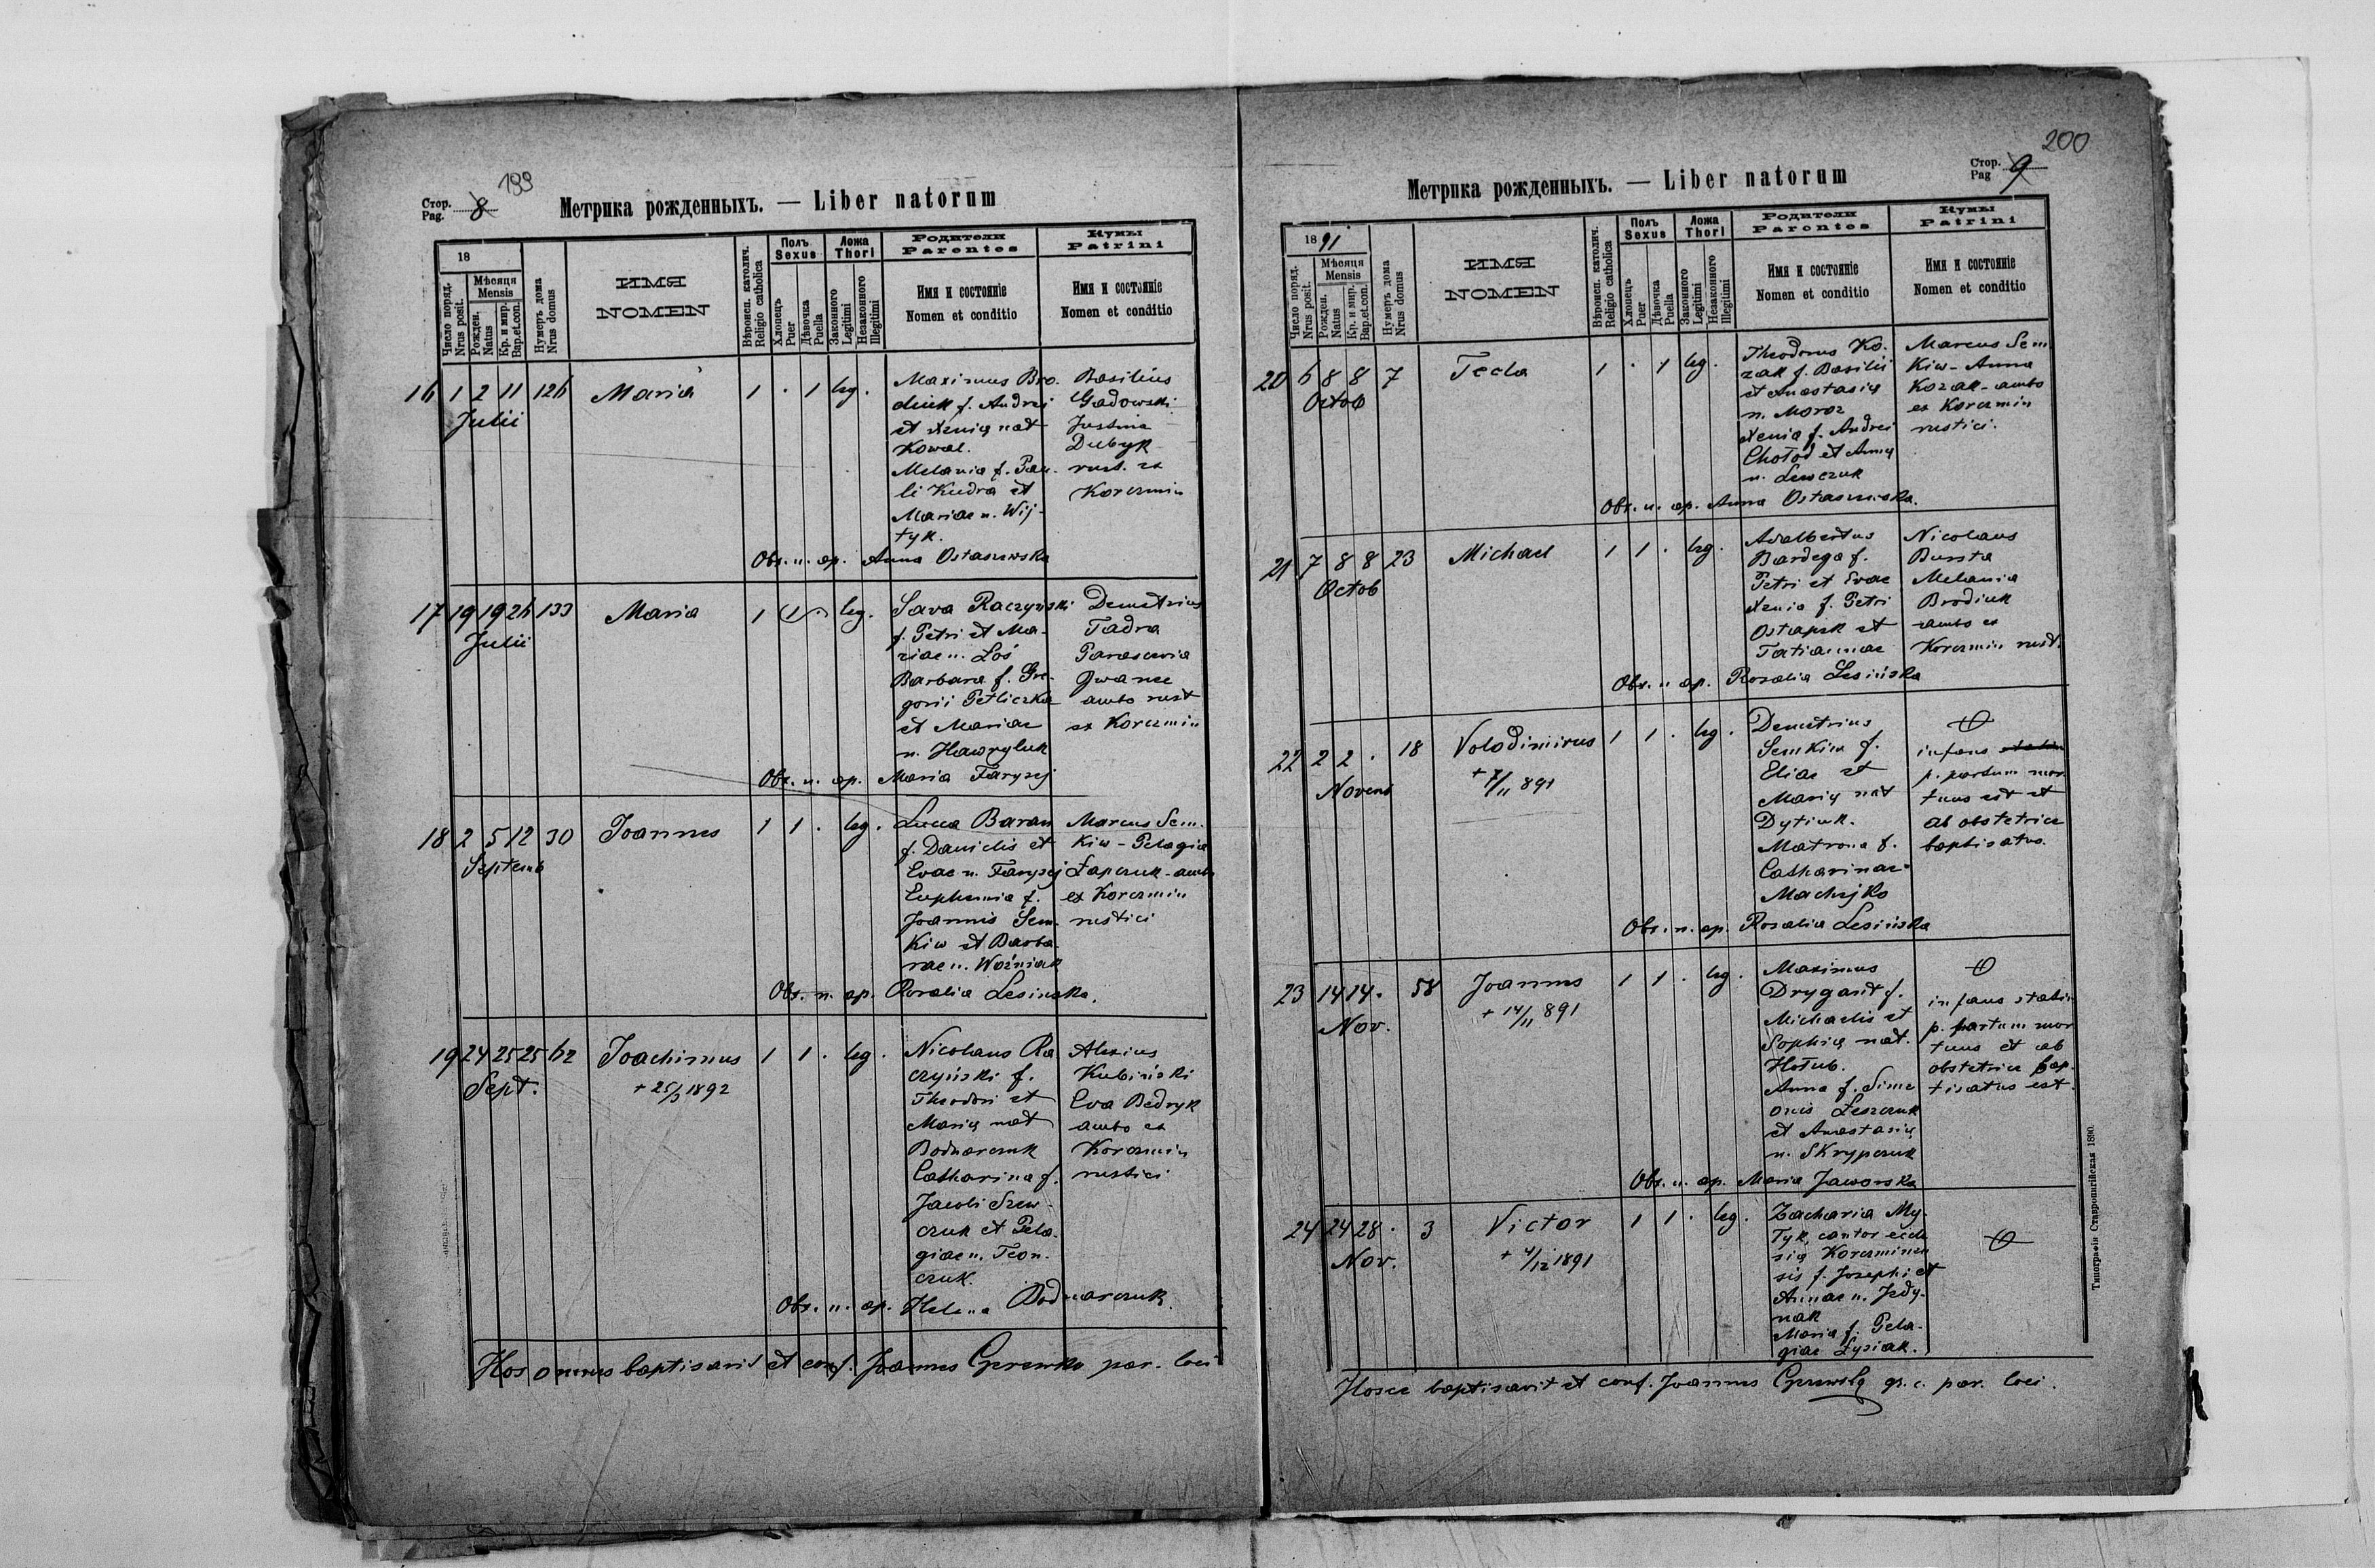 199
Стор.
Pag. 8
Метрика рожденныхъ. — Liber natorum
18
Число поряд.
Nrus posit.
Мѣсяця
Mensis
Рожден.
Natus
Кр. и мир.
Bap.et.con.
Нумеръ дома
Nrus domus
ИМЯ
NOMEN
Вѣроисп. католич.
Religio catholica
Полъ
Sexus
Хлопець
Puer
Дѣвочка
Puella
Ложа
Thori
Законного
Legitimi
Незаконного
Illegitimi
Родители
Parentes
Имя и состояніе
Nomen et conditio
Кумы
Patrini
Имя и состояніе
Nomen et conditio
16 1 2 11 126 Maria 1 . 1 leg.
Julii
Maximus Bro-
diuk f. Andrei
et Xenię nat
Kowal.
Melania f. Pau-
li Kudra et
Mariae n. Wij-
tyk.
Basilius
Gadowski
Justina
Dubyk
rust. ex
Korczmin
Obs. n. ap. Anna Ostaszewska
17 19 19 26 133 Maria 1 1 . leg.
Julii
Sava Raczyński
f. Petri et Ma-
riae n. Łoś
Barbara f. Gre-
gorii Petliczka
et Mariae
n. Hawryluk
Demetrius
Fadra
Parascevia
Iwanec
ambo rust
ex Korczmin
Obs. n. ap. Maria Farysej
18 2 5 12 30 Joannes 1 1 . leg.
Septemb
Lucca Baran
f. Danielis et
Evae n. Farysej
Euphemia f.
Joannis Sem-
kiw et Barba-
rae n. Woźniak
Marcus Sem-
kiw - Pelagia
Łapczuk - ambo
ex Korczmin
rustici
Obs. n. ap. Rosalia Lesinska.
19 24 25 25 62 Joachimus 1 1 . leg.
Sept.
+ 25/3 1892
Nicolaus Ra
czyński f.
Theodori et
Marię nat
Bodnarczuk
Catharina f.
Jacobi Szew-
czuk et Pela-
giae n. Teon-
czuk.
Alexius
Kubiński
Eva Bedryk
ambo ex
Korczmin
rustici
Obs. n. ap. Helena Bodnarczuk.
Hos omnes baptisavit et conf. Joannes par. loci
200
Стор.
Pag 9
Метрика рожденныхъ. — Liber natorum
1891
Число поряд.
Nrus posit.
Мѣсяця
Mensis
Рожден.
Natus
Кр. и мир.
Bap.et.con.
Нумеръ дома
Nrus domus
ИМЯ
NOMEN
Вѣроисп. католич.
Religio catholica
Полъ
Sexus
Хлопецъ
Puer
Дѣвочка
Puella
Ложа
Thori
Законного
Legitimi
Незаконного
Illegitimi
Родители
Parentes
Имя и состояніе
Nomen et conditio
Кумы
Patrini
Имя и состояніе
Nomen et conditio
20 6 8 8 7 Tecla 1 . 1 leg.
Octob
Theodorus Ko-
zak f. Basilii
et Anastasię
n. Moroz
Xenia f. Andrei
Chołod et Annę
n. Lewczuk
Marcus Sem
kiw - Anna
Kozak - ambo
ex Korczmin
rustici.
Obs. n. ap. Anna Ostaszewska.
21 7 8 8 23 Michael 1 1 . leg.
Octob
Adalbertus
Bardega f.
Petri et Evae
Xenia f. Petri
Ostapek et
Tatiannae
Nicolaus
Bursta
Melania
Brodiuk
ambo ex
Korczmin rust.
Obs. n ap. Rosalia Lesińska
22 2 2 . 18 Volodimirus 1 1 . leg.
Novemb
+ 2/11 891
Demetrius
Semkiw f.
Eliae et
Marię nat
Dytiuk.
Matrona f.
Catharinae
Machejko
infans
p. partum mor
tuus est et
ab obstetrice
baptisatus.
Obs. n. ap. Rosalia Lesińska
23 14 14 . 58 Joannes 1 1 . leg.
Nov.
+ 14/11 891
Maximus
Drygant f.
Michaelis et
Sophię nat.
Hołub.
Anna f. Sime
onis Łeszczuk
et Anastasię
n. Skrypczuk
infans statim
p. partum mor
tuus et ab
obstetrice bap-
tisatus est.
Obs. n. ap. Maria Jaworska
24 24 28 . 3 Victor 1 1 . leg.
Nov.
+ 4/12 1891
Zacharia My-
Tyk, cantor eccle
się Korczminen
sis f. Josephi et
Annae n. Jedy-
nak
Maria f. Pela-
giae Łysiak.
Hosce baptisavit et conf. Joannes gr. c. par. loci.
Типографія Ставропигійская 1890.